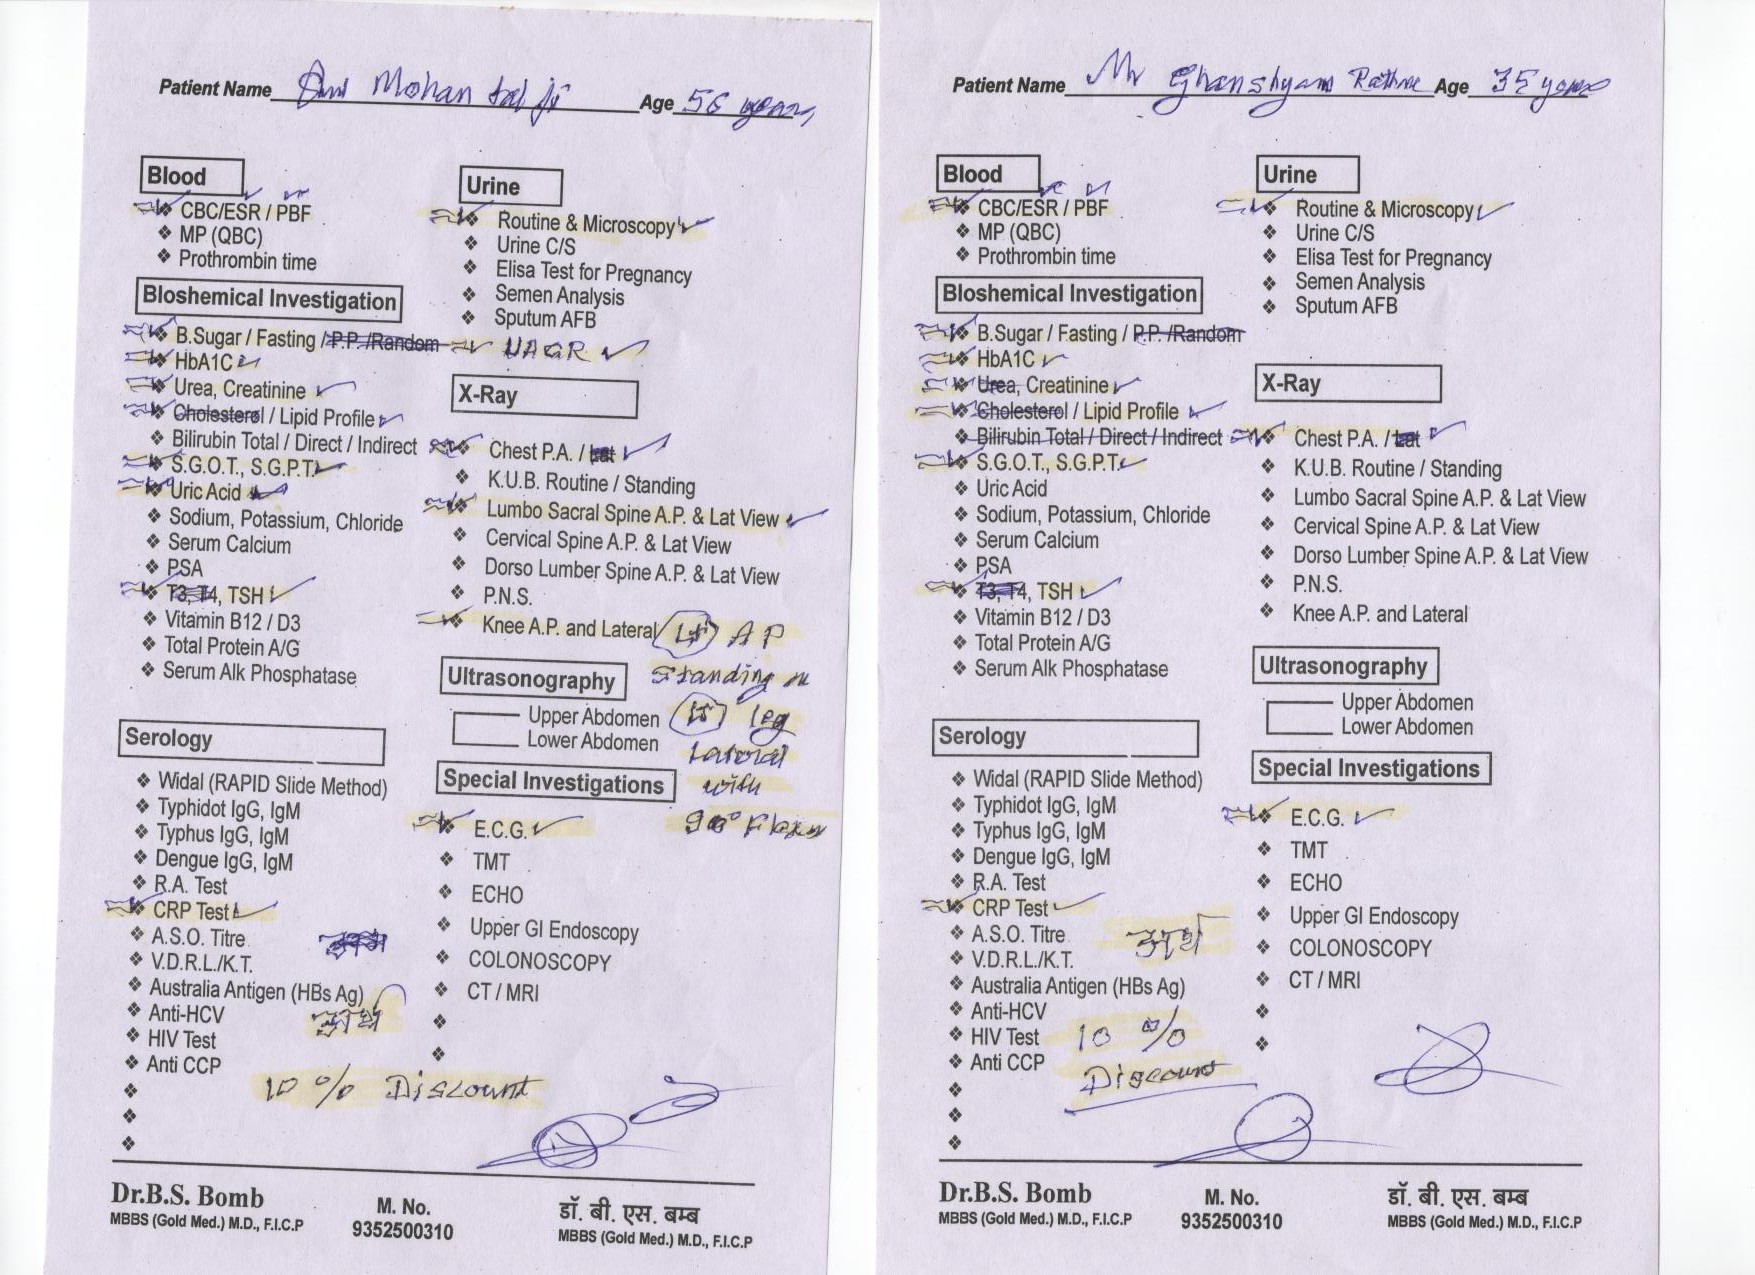 Patient Name Mohan Lal Ji Age 56 years
Blood
CBC/ESR / PBF
MP (QBC)
Prothrombin time
Bloshemical Investigation
B.Sugar / Fasting / P.P. /Random
HbA1C
Urea, Creatinine
Cholesterol / Lipid Profile
Bilirubin Total / Direct / Indirect
S.G.O.T., S.G.P.T.
Uric Acid
Sodium, Potassium, Chloride
Serum Calcium
PSA
T3, T4, TSH
Vitamin B12 / D3
Total Protein A/G
Serum Alk Phosphatase
Serology
Widal (RAPID Slide Method)
Typhidot IgG, IgM
Typhus IgG, IgM
Dengue IgG, IgM
R.A. Test
CRP Test
A.S.O. Titre
V.D.R.L./K.T.
Australia Antigen (HBs Ag)
Anti-HCV
HIV Test
Anti CCP
10 % Discount
Urine
Routine & Microscopy
Urine C/S
Elisa Test for Pregnancy
Semen Analysis
Sputum AFB
UACR
X-Ray
Chest P.A. / Lat
K.U.B. Routine / Standing
Lumbo Sacral Spine A.P. & Lat View
Cervical Spine A.P. & Lat View
Dorso Lumber Spine A.P. & Lat View
P.N.S.
Knee A.P. and Lateral Lt AP
Standing on
Lt leg
Lateral
with
90° Flexn
Ultrasonography
Upper Abdomen
Lower Abdomen
Special Investigations
E.C.G.
TMT
ECHO
Upper GI Endoscopy
COLONOSCOPY
CT / MRI
Dr.B.S. Bomb
MBBS (Gold Med.) M.D., F.I.C.P
M. No.
9352500310
डॉ. बी. एस. बम्ब
MBBS (Gold Med.) M.D., F.I.C.P
Patient Name Mr Ghanshyam Age 35 years
Blood
CBC/ESR / PBF
MP (QBC)
Prothrombin time
Bloshemical Investigation
B.Sugar / Fasting / P.P. /Random
HbA1C
Urea, Creatinine
Cholesterol / Lipid Profile
Bilirubin Total / Direct / Indirect
S.G.O.T., S.G.P.T.
Uric Acid
Sodium, Potassium, Chloride
Serum Calcium
PSA
T3, T4, TSH
Vitamin B12 / D3
Total Protein A/G
Serum Alk Phosphatase
Serology
Widal (RAPID Slide Method)
Typhidot IgG, IgM
Typhus IgG, IgM
Dengue IgG, IgM
R.A. Test
CRP Test
A.S.O. Titre
V.D.R.L./K.T.
Australia Antigen (HBs Ag)
Anti-HCV
HIV Test
Anti CCP
10 %
Discount
Urine
Routine & Microscopy
Urine C/S
Elisa Test for Pregnancy
Semen Analysis
Sputum AFB
X-Ray
Chest P.A. / Lat
K.U.B. Routine / Standing
Lumbo Sacral Spine A.P. & Lat View
Cervical Spine A.P. & Lat View
Dorso Lumber Spine A.P. & Lat View
P.N.S.
Knee A.P. and Lateral
Ultrasonography
Upper Abdomen
Lower Abdomen
Special Investigations
E.C.G.
TMT
ECHO
Upper GI Endoscopy
COLONOSCOPY
CT / MRI
Dr.B.S. Bomb
MBBS (Gold Med.) M.D., F.I.C.P
M. No.
9352500310
डॉ. बी. एस. बम्ब
MBBS (Gold Med.) M.D., F.I.C.P